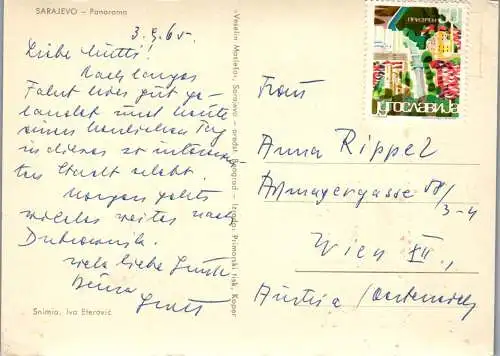 SARAJEVO – Panorama
3.9.65.
Liebe Mutti!
Nach langer
Fahrt hier gut ge-
landet und heute
einen herrlichen Tag
in dieser so interessan-
ten Stadt erlebt.
Morgen geht's
wieder weiter nach
Dubrovnik.
Viele liebe Grüße
Deine
Snimio: Iva Eterović
»Veselin Masleša«, Sarajevo — predst. Beograd — Izrada: Primorski tisk, Koper
ПРИЗРЕН
ЈУГОСЛАВИЈА
Frau
Anna Rippel
Aßmayergasse 58/
3-4
Wien XII.,
Austria (Oesterreich)